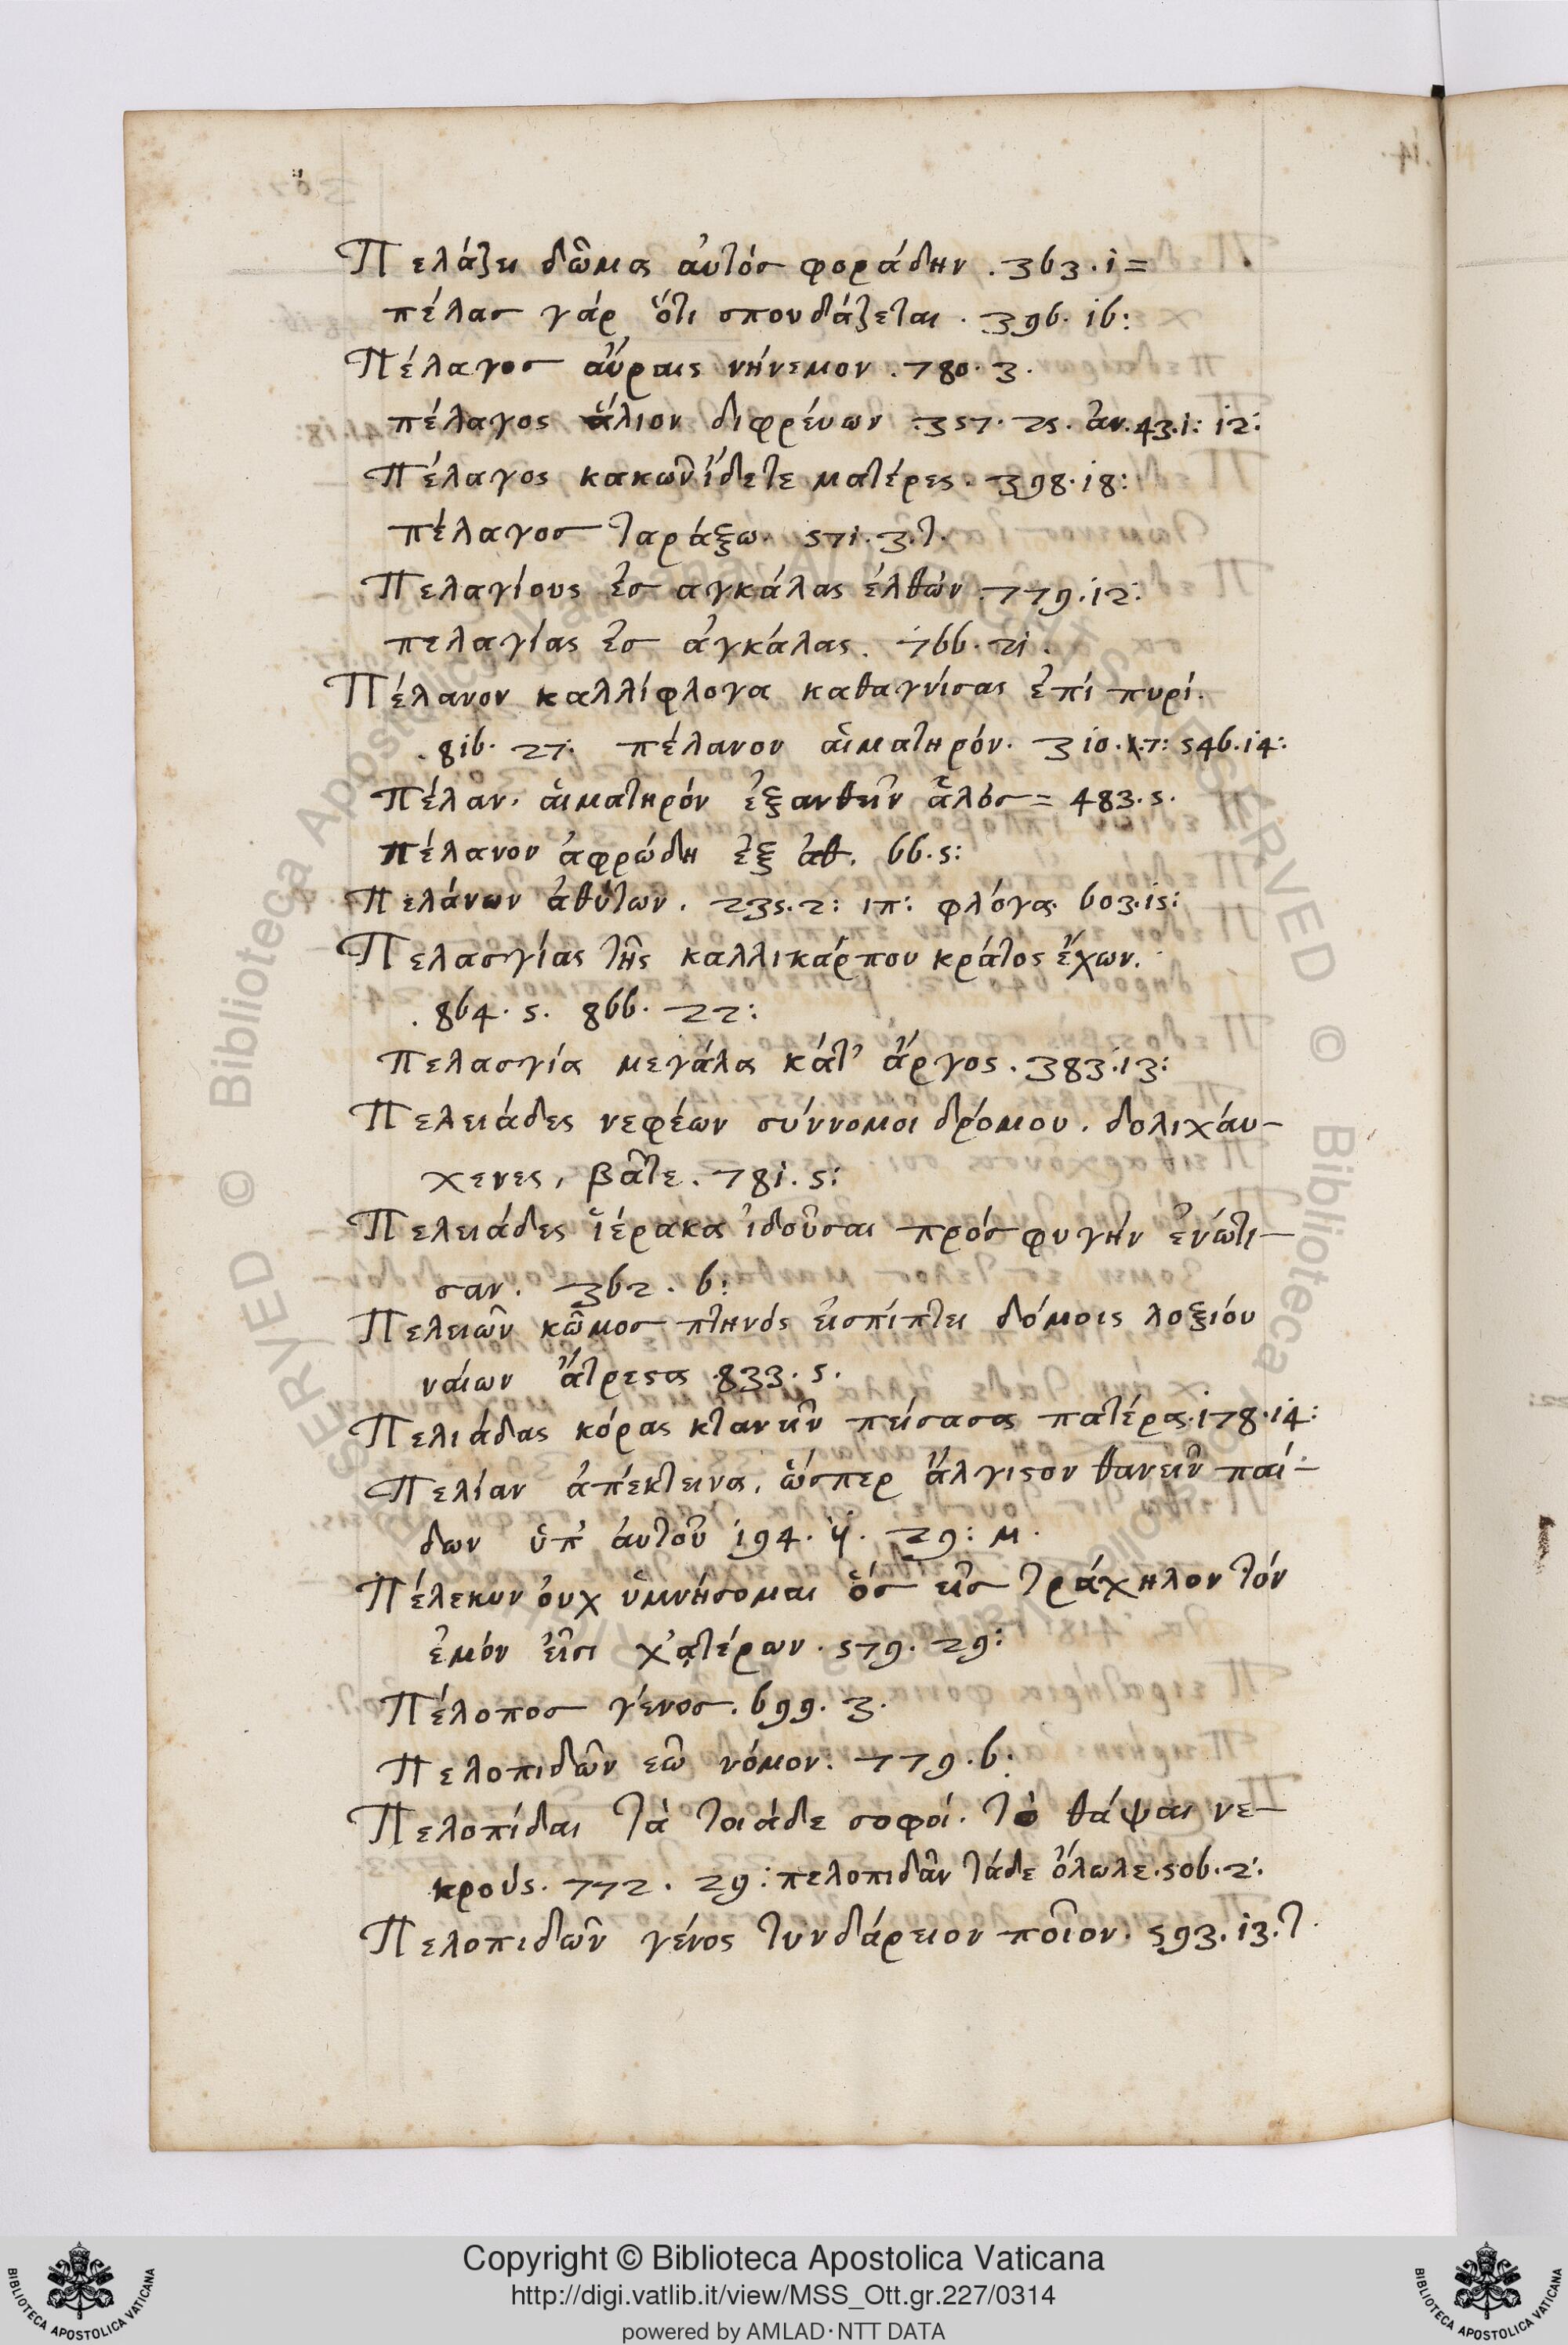 Πελάζει δῶμα αὐτόσ φοράδην . 363 . i =
πέλασ γάρ ὅτι σπουδάζεται . 396 . i6 :
Πέλαγοσ αὔραις νήνεμον . 780 . 3 .
πέλαγος ἅλιον διφρέυων . 357 . 25 . ἀν . 43 . i : i2 :
Πέλαγος κακῶν ἴδετε ματέρες . 398 . i8 :
πέλαγοσ ταράξω . 57i . 3 . τ .
Πελαγίους ἐσ αγκάλας ἐλθών . 779 . i2 :
πελαγίας ἐσ ἀγκάλας . 766 . 2i .
Πέλανον καλλίφλογα καθαγνίσας ἐπί πυρί .
. 8i6 . 27 : πέλανον αἱματηρόν . 3i0 . 7 : 546 . i4 :
Πέλαν . αἱματηρόν ἐξανθεῖν ἁλόσ = 483 . 5 .
πέλανον ἀφρώδη ἐξ ἀθ . 66 . 5 :
Πελάνων ἀθύτων . 235 . 2 : ιπ : φλόγα . 603 . i5 :
Πελασγίας τῆς καλλικάρπου κράτος ἔχων .
. 864 . 5 . 866 . 22 :
Πελασγία μεγάλα κάτ' ἄργος . 383 . i3 :
Πελειάδες νεφέων σύννομοι δρόμου . δολιχάυ-
χενες , βᾶτε . 78i . 5 :
Πελειάδες ἱέρακα ἰδοῦσαι πρόσ φυγήν ἐνώτι-
σαν . 362 . 6 :
Πελειῶν κῶμος πτηνός εἰσπίπτει δόμοις λοξιόυ
ναίων ἄτρεστα . 833 . 5 .
Πελιάδας κόρας κτανεῖν πείσασα πατέρα . i78 . i4 :
Πελίαν ἀπέκτεινα , ὥσπερ ἄλγιστον θανεῖν παί-
δων ὑπ' ἀυτοῦ i94 . 29 : μ .
Πέλεκυν ὀυχ ὑμνήσομαι ὅσ εἰσ τράχηλον τόν
ἐμόν εἶσι χ'ατέρων . 579 . 29 :
Πέλοπος γένοσ . 699 . 3 .
Πελοπιδῶν εῶ νόμον . 779 . 6 :
Πελοπίδαι τὰ τοιάδε σοφοί . τὸ θάψαι νε-
κρούς . 772 . 29 : πελοπιδᾶν τάδε ὄλωλε . 506 . 2 .
Πελοπιδῶν γένος τυνδάρειον ποῖον . 593 . i3 . τ .
Copyright © Biblioteca Apostolica Vaticana
http://digi.vatlib.it/view/MSS_Ott.gr.227/0314
powered by AMLAD·NTT DATA